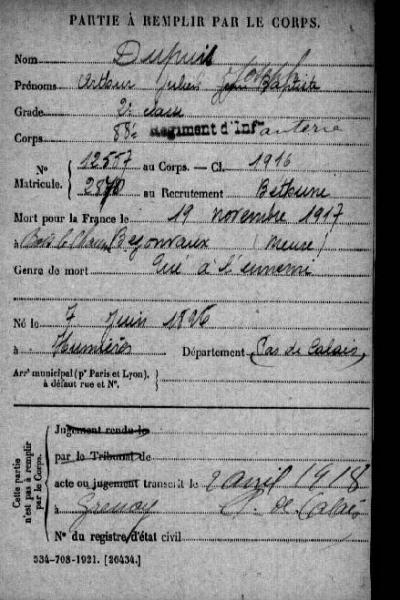 PARTIE À REMPLIR PAR LE CORPS.
Nom Dupuis
Prénoms Arthur Julien Joseph Baptiste
Grade 2e classe
Corps 88e Régiment d'Infanterie
N° Matricule. { 12557 au Corps. — Cl. 1916
2870 au Recrutement Béthune
Mort pour la France le 19 novembre 1917
à Bois le Bezonvaux (Meuse)
Genre de mort Tué à l'ennemi
Né le 7 Juin 1896
à Humières Département Pas de Calais
Arrt municipal (pr Paris et Lyon), à défaut rue et N°. }
Cette partie n'est pas à remplir par le Corps.
Jugement rendu le
par le Tribunal de
acte ou jugement transcrit le 2 avril 1918
à P. de Calais
N° du registre d'état civil
534-708-1921. [26434.]